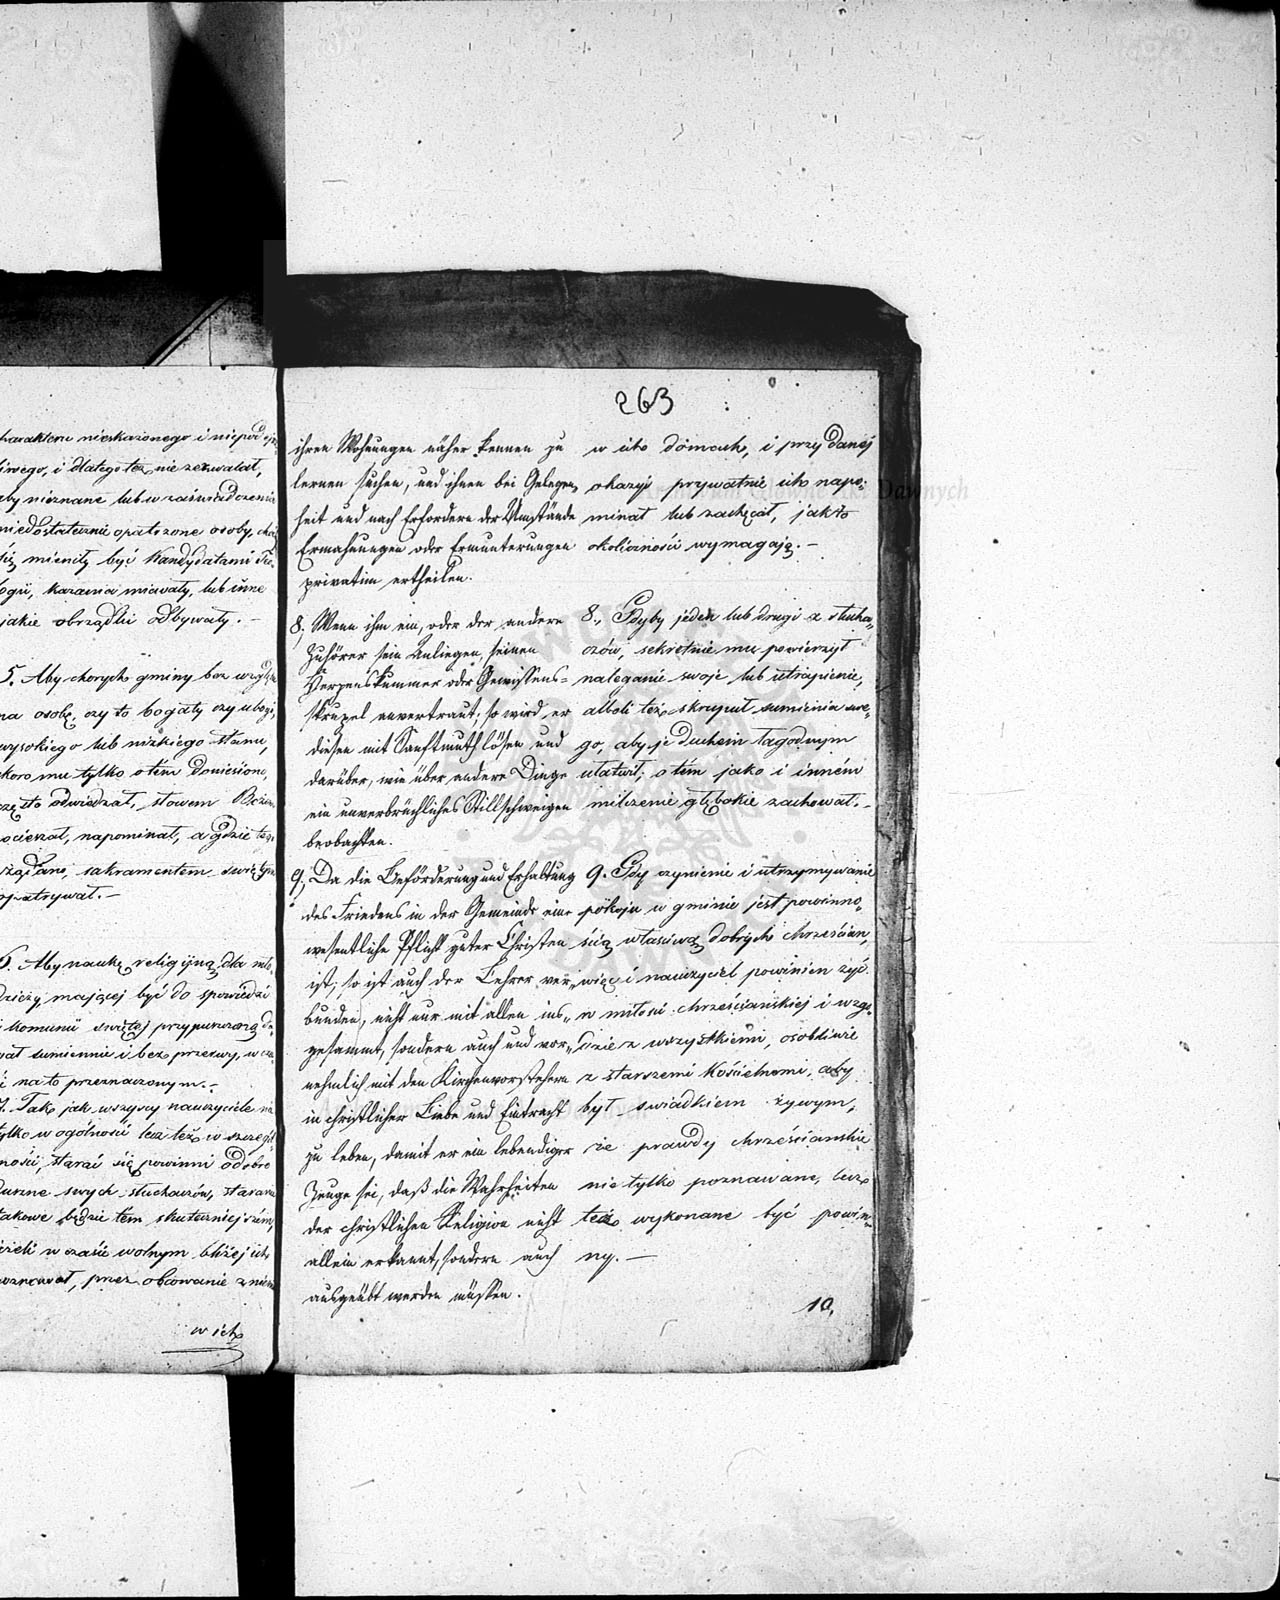 harakteru nieskażonego i niepodej-
liwego, i dlatego też nie zezwalał,
aby nieznane lub w zaświadczenia
niedostatecznie opatrzone osoby, choć
się mieniły być Kandydatami Teo-
logii, kazania miawały, lub inne
jakie obrządki odbywały. —
5. Aby chorych gminy bez względu
na osobę, czy to bogaty czy ubogi,
wysokiego lub nizkiego stanu,
skoro mu tylko o tém doniesiono,
często odwiedzał, słowem Bożem
pocieszał, napominał, a gdzie tego
żądano, sakramentem świętym
opatrywał. —
6. Aby naukę religijną dla mło-
dzieży mającej być do spowiedzi
i komunii świętej przypuszczoną da-
wał sumiennie i bez przerwy, w cza-
sie na to przeznaczonym. —
7. Tak jak wszyscy nauczyciele nie
tylko w ogólności lecz też w szczegól-
ności, starać się powinni o dobro
duszne swych słuchaczów, staranie
takowe będzie tem skuteczniejszém,
jeżeli w czasie wolnym bliżej ich
poznawał, przez obcowanie z niemi
w ich
263
ihren Wohnungen näher kennen zu
lernen suchen, und ihnen bei Gelegen-
heit und nach Erfordern der Umstände
Ermahnungen oder Ermunterungen
privatim ertheilen.
8, Wenn ihm ein, oder der andere
Zuhörer sein Anliegen, seinen
Herzenskummer oder Gewissens-
skrupel anvertraut; so wird er
diesen mit Sanftmuth lösen und
darüber, wie über andere Dinge
ein unverbrüchliches Stillschweigen
beobachten.
9, Da die Beförderung und Erhaltung
des Friedens in der Gemeinde eine
wesentliche Pflicht guter Christen
ist; so ist auch der Lehrer ver-
bunden, nicht nur mit allen ins-
gesammt, sondern auch und vor-
nehmlich mit den Kirchenvorstehern
in christlicher Liebe und Eintracht
zu leben, damit er ein lebendiger
Zeuge sei, daß die Wahrheiten
der christlichen Religion nicht
allein erkannt, sondern auch
ausgeübt werden müssen.
w ich domach, i przy danéj
okazyi prywatnie ich napo-
minał lub zachęcał, jak to
okoliczności wymagają. —
8., Gdyby jeden lub drugi z słucha-
czów, sekretnie mu powierzył
naleganie swoje lub utrapienie,
alboli też skrupuł sumienia swe-
go, aby je duchem łagodnym
ułatwił; o tém jako i inném
milczenie głębokie zachował. —
9. Gdy czynienie i utrzymywanie
pokoju w gminie jest powinno-
ścią właściwą dobrych chrześcian,
więc i nauczyciel powinien żyć
w miłości chrześciańskiej i wzgo-
dzie z wszystkiemi, osobliwie
z starszemi Kościelnemi, aby
był swiadkiem żywym,
że prawdy chrześciańskie
nie tylko poznawane, lecz
też wykonane być powin-
ny. —
10,